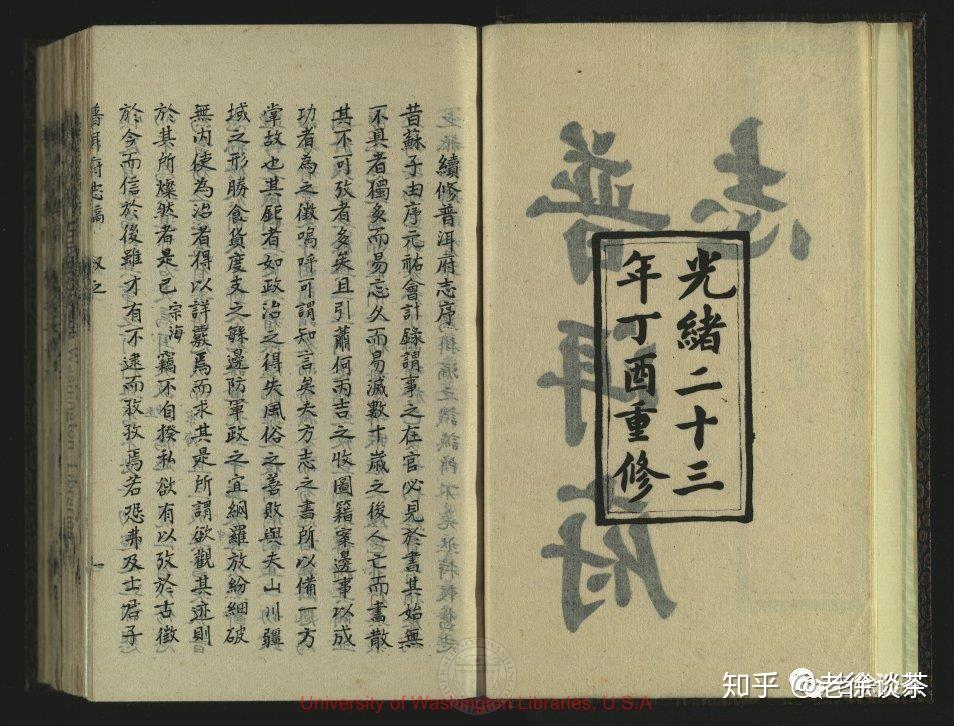 光緒二十三
年丁酉重修
志
普洱府
續修普洱府志序
昔蘇子由序元祐會計錄謂事之在官必見於書其始無
不具者獨多而易忘久而易滅數十歲之後人亡而書散
其不可攷者多矣且引蕭何丙吉之收圖籍案邊事以成
功者為之徵嗚呼可謂知言矣夫方志之書所以備一方
掌故也其鉅者如政治之得失風俗之善敗與夫山川疆
域之形勝食貨度支之縣邊防軍政之宜網羅放紛細破
無內使為治者得以詳覈焉而求其是所謂欲觀其迹則
於其所燦然者是已宗海竊不自揆私欲有以攷於古徵
於今而信於後雖才有不逮而孜孜焉若恐弗及士君子
普洱府志稿 叙之 一
University of Washington Libraries, U.S.A
知乎 @老徐谈茶